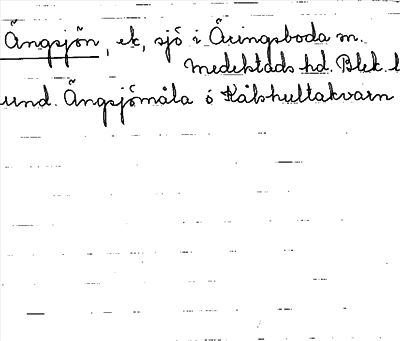 Ängsjön, ek, sjö i Äringsboda sn.
Medelstads hd. Blek. l
und. Ängsjömåla ö Kålshultakvarn